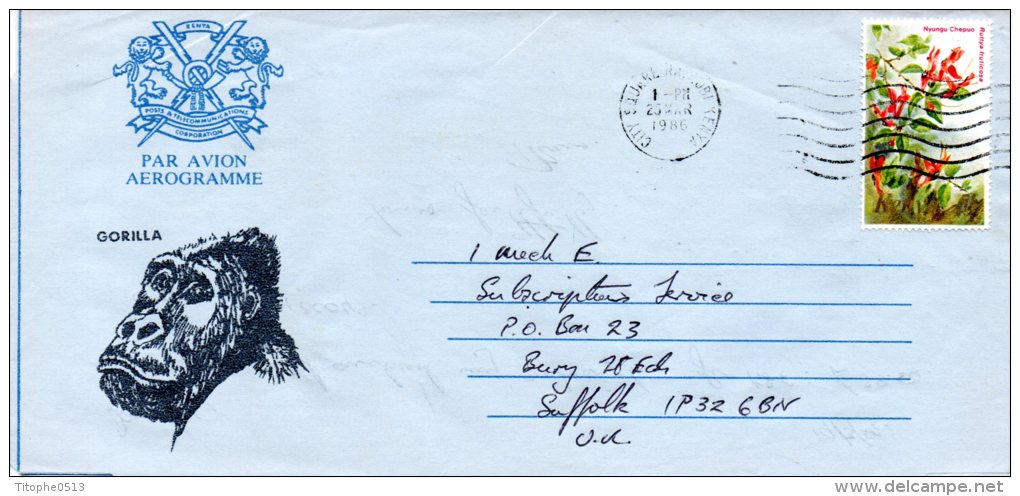 KENYA
POSTS & TELECOMMUNICATIONS
CORPORATION
PAR AVION
AEROGRAMME
GORILLA
CITY SQUARE NAIROBI KENYA
1-PM
25 MAR
1986
Nyungu Chepuo
Ruttya fruticosa
I Mech E.
Subscriptions Service
P.O. Box 23
Bury St Eds
Suffolk IP32 6BN
U.K.
Titophe0513
delcampe.net